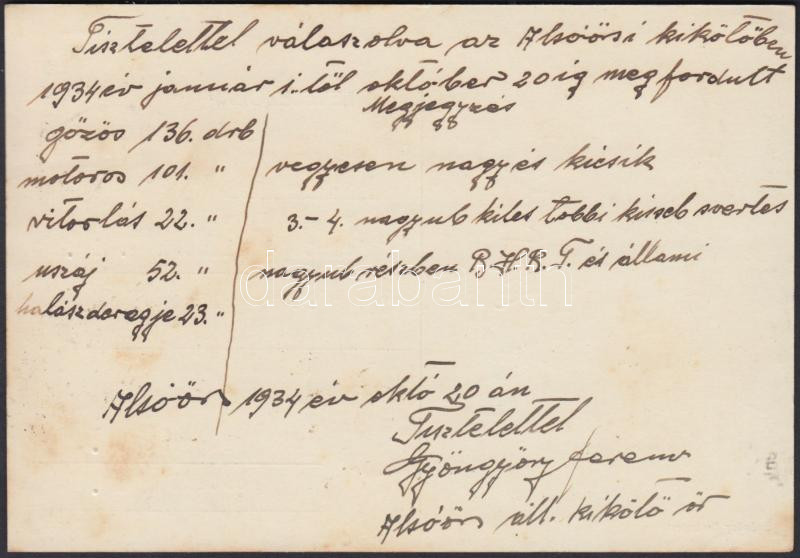 Tisztelettel válaszolva az Alsóörsi kikötőben
1934 év január 1.-től október 20ig megfordult
Megjegyzés
gőzös 136. drb
motoros 101. " vegyesen nagy és kicsik
vitorlás 22. " 3.-4. nagyub kiles többi kisseb svertes
uszáj 52. " nagyub részben B.H.R.T. és állami
halászderegje 23. "
Alsóörs 1934 év októ 20 án
Tisztelettel
Gyöngyösy Ferenc
Alsóörs áll. kikötő őr
darabanth